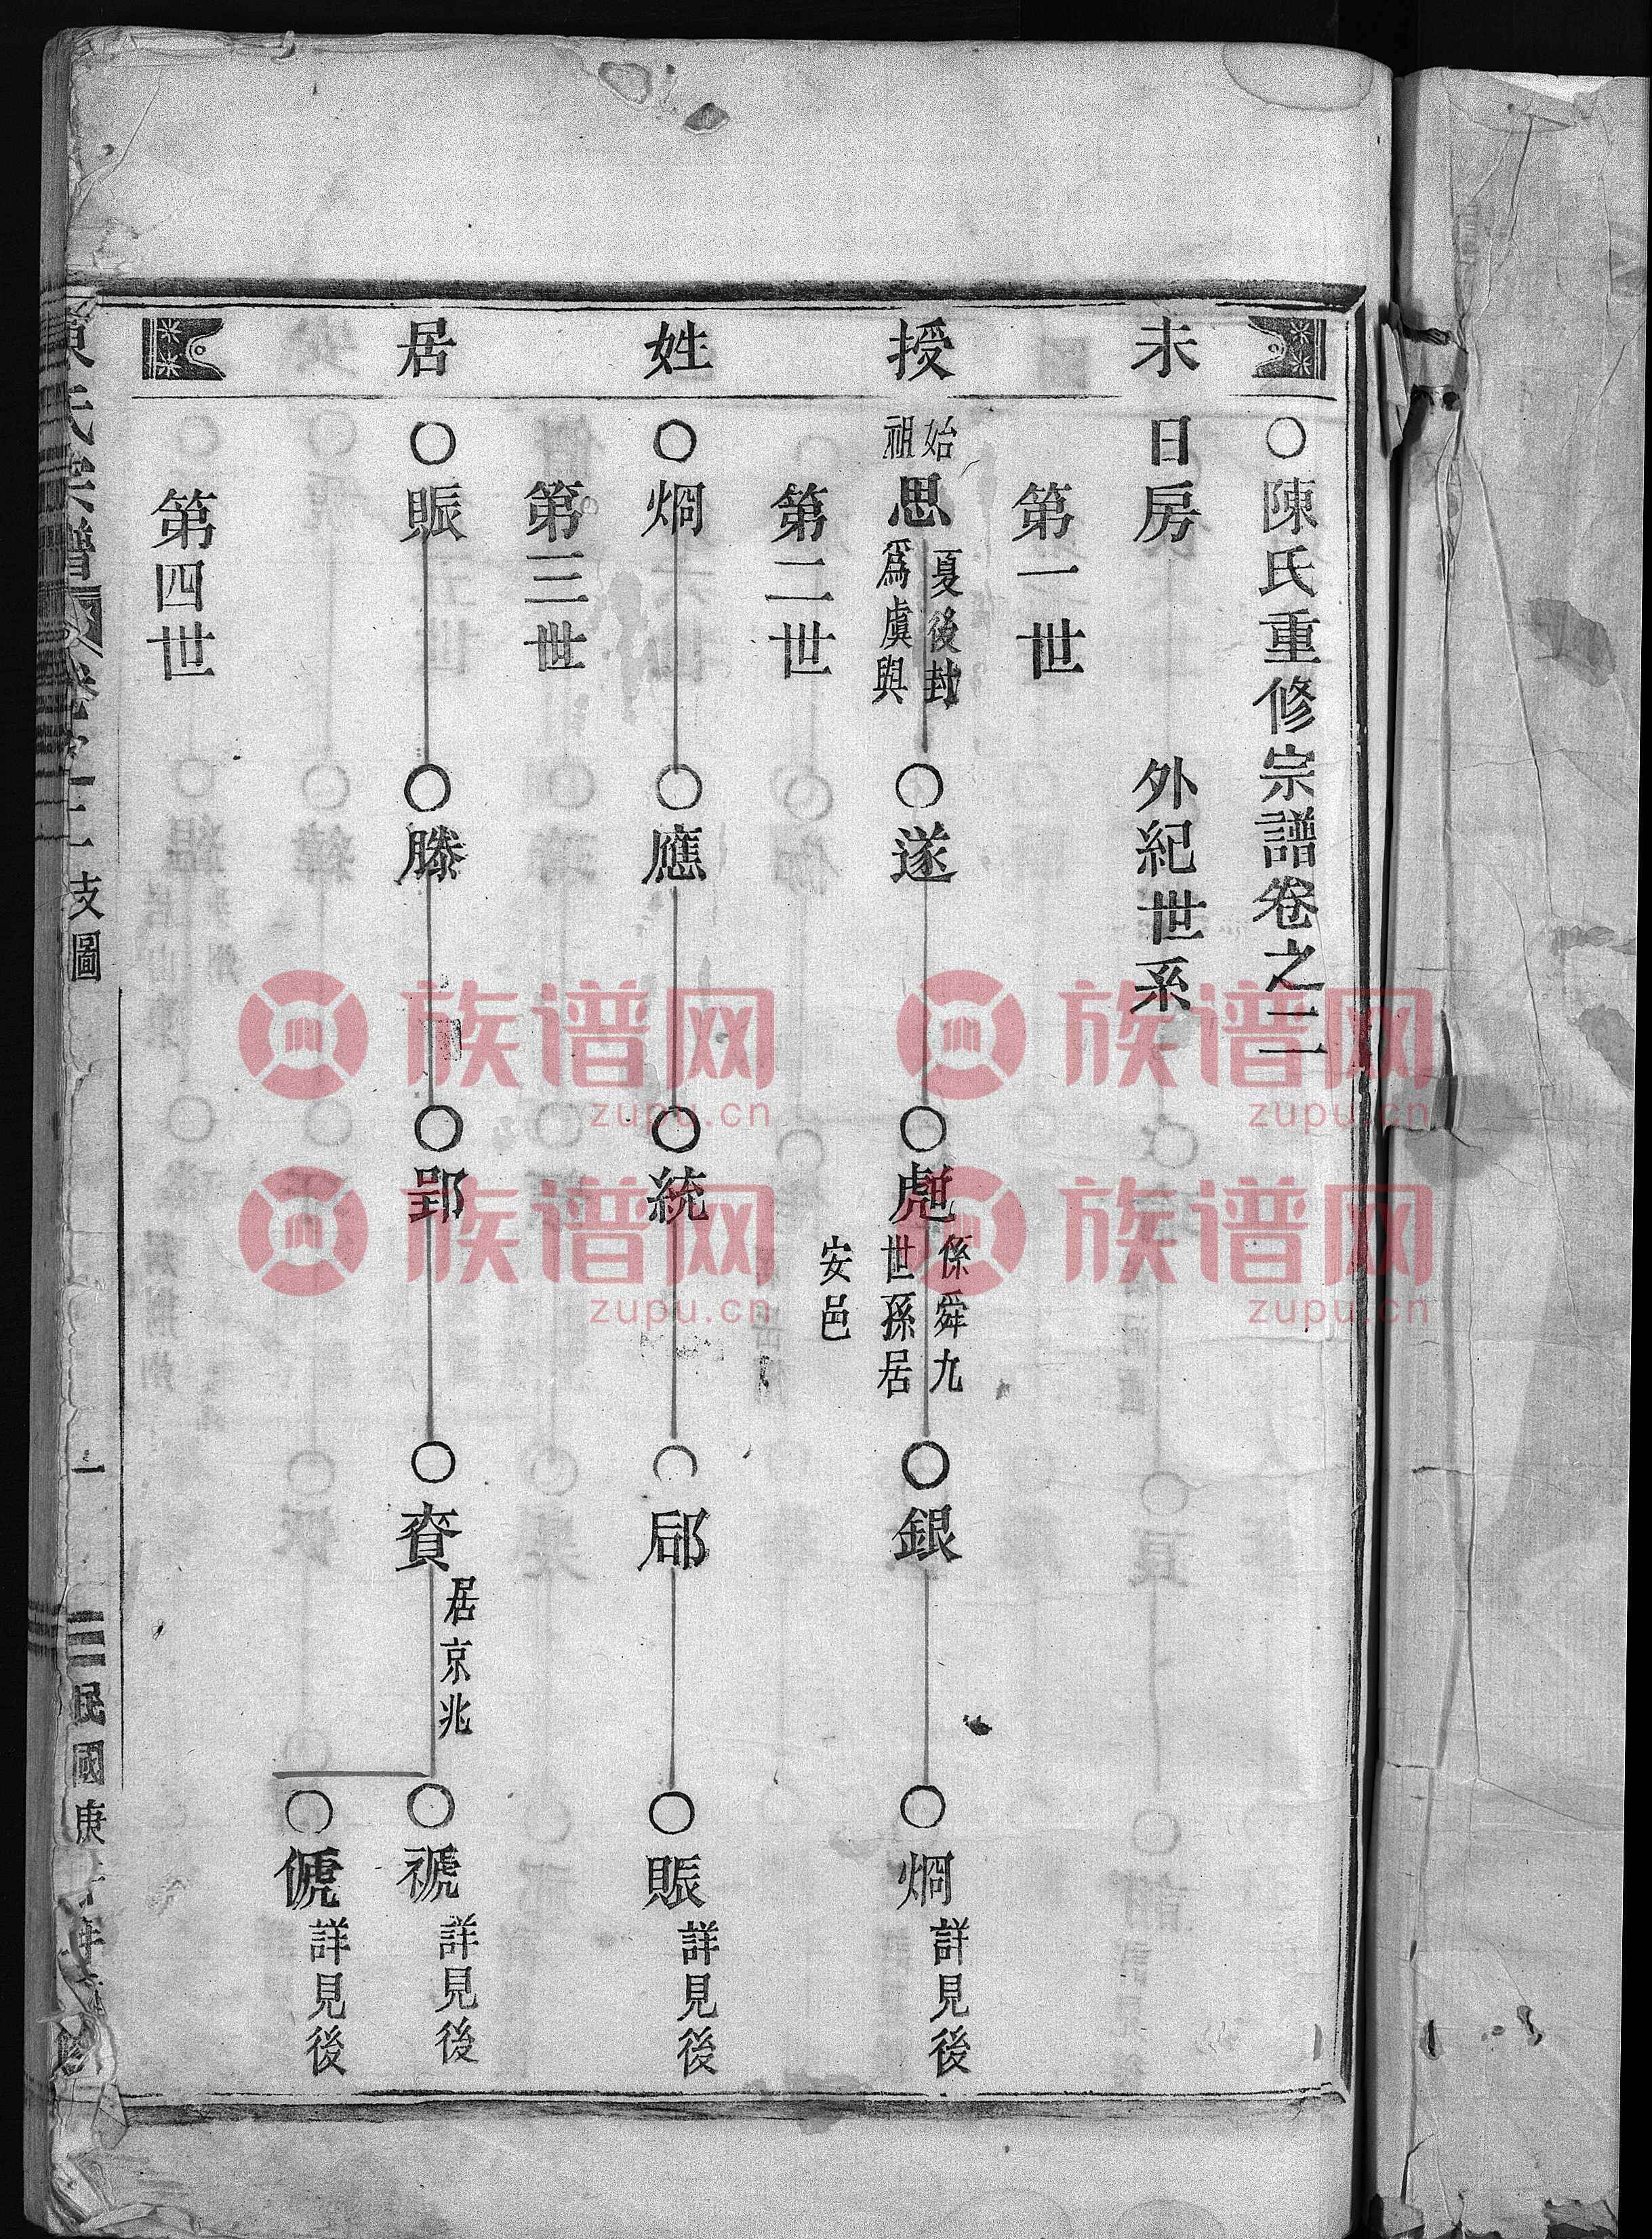 未授姓居
○陳氏重修宗譜卷之二
日房 外紀世系
第一世
始祖思 夏後封為虞與
○遂
○彪 係舜九世孫居安邑
○銀
○烱 詳見後
第二世
○烱
○應
○統
○郈
○賬 詳見後
第三世
○賬
○滕
○郢
○賚 居京兆
○褫 詳見後
○傂 詳見後
第四世
氏宗譜
支圖
一
民國庚
族谱网
zupu.cn
族谱网
zupu.cn
族谱网
zupu.cn
族谱网
zupu.cn